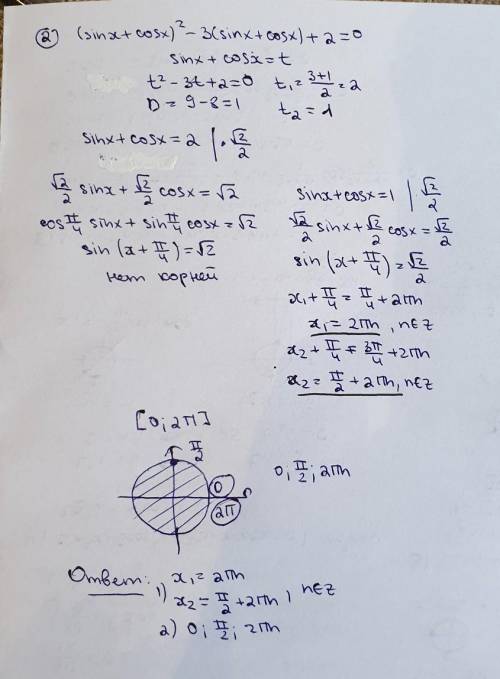 2) (sinx+cosx)² - 3(sinx+cosx)+2=0
sinx+cosx=t
t²-3t+2=0 t₁=(3+1)/2=2
D=9-8=1 t₂=1
sinx+cosx=2 | ·√2/2
√2/2 sinx+√2/2 cosx=√2
cos π/4 sinx+sin π/4 cosx=√2
sin(x+π/4)=√2
нет корней
sinx+cosx=1 | √2/2
√2/2 sinx+√2/2 cosx=√2/2
sin(x+π/4)=√2/2
x₁+π/4=π/4+2πn
x₁=2πn, n∈z
x₂+π/4=3π/4+2πn
x₂=π/2+2πn, n∈z
[0;2π]
π/2
0
2π
0; π/2; 2πn
Ответ:
1) x₁=2πn
x₂=π/2+2πn, n∈z
2) 0; π/2; 2πn